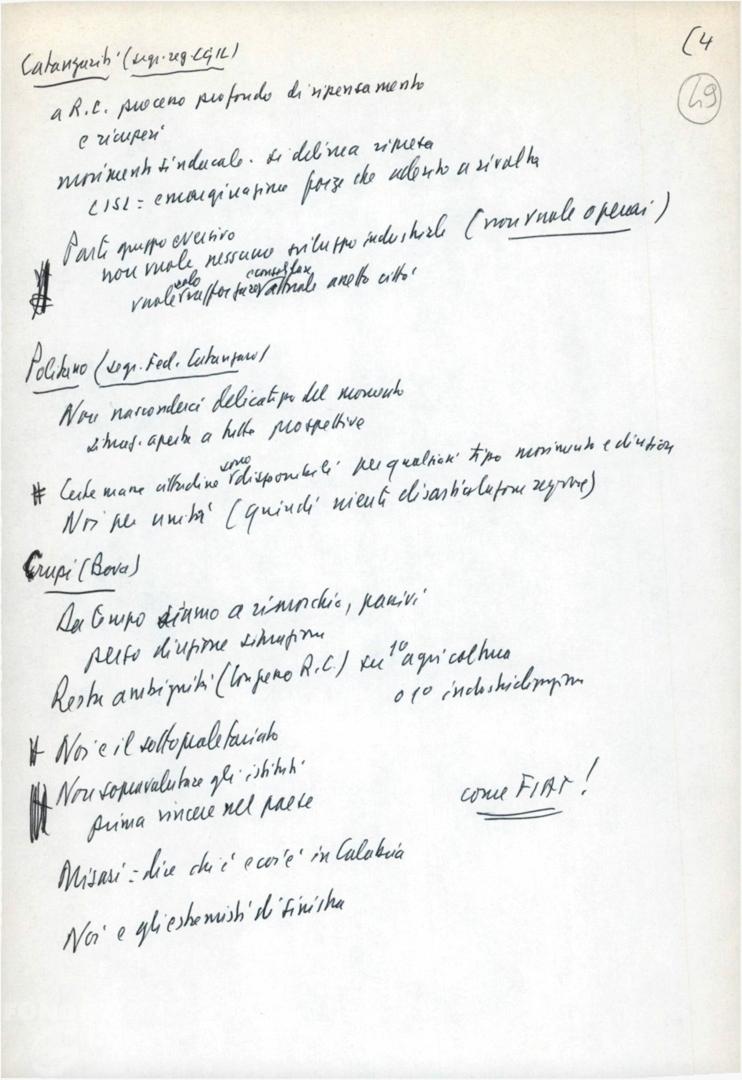 (4
49
Catanzariti (segr. reg. CGIL)
a R.C. processo profondo di ripensamento
e ricuperi
movimento sindacale. si delinea ripresa
CISL = emarginazione forze che aderito a rivolta
Parte gruppo eversivo
non vuole nessuno sviluppo industriale (non vuole operai)
vuole solo rafforzare attuale assetto città
Politano (segr. Fed. Catanzaro)
Non nasconderci delicatezza del momento
situaz. aperta a tutte prospettive
# Certe masse cittadine sono disponibili per qualsiasi tipo movimento e direzione
Noi per unità (quindi niente disarticolazione regione)
Crupi (Bova)
Da tempo siamo a rimorchio, passivi
perso direzione situazione
Resta ambiguità (Congresso R.C.) su 1° agricoltura
o 1° industrializzazione
# Noi e il sottoproletariato
# Non sopravalutare gli istituti
prima vincere nel paese
come FIAT!
Misasi = dice chi è e cos'è in Calabria
Noi e gli estremisti di sinistra